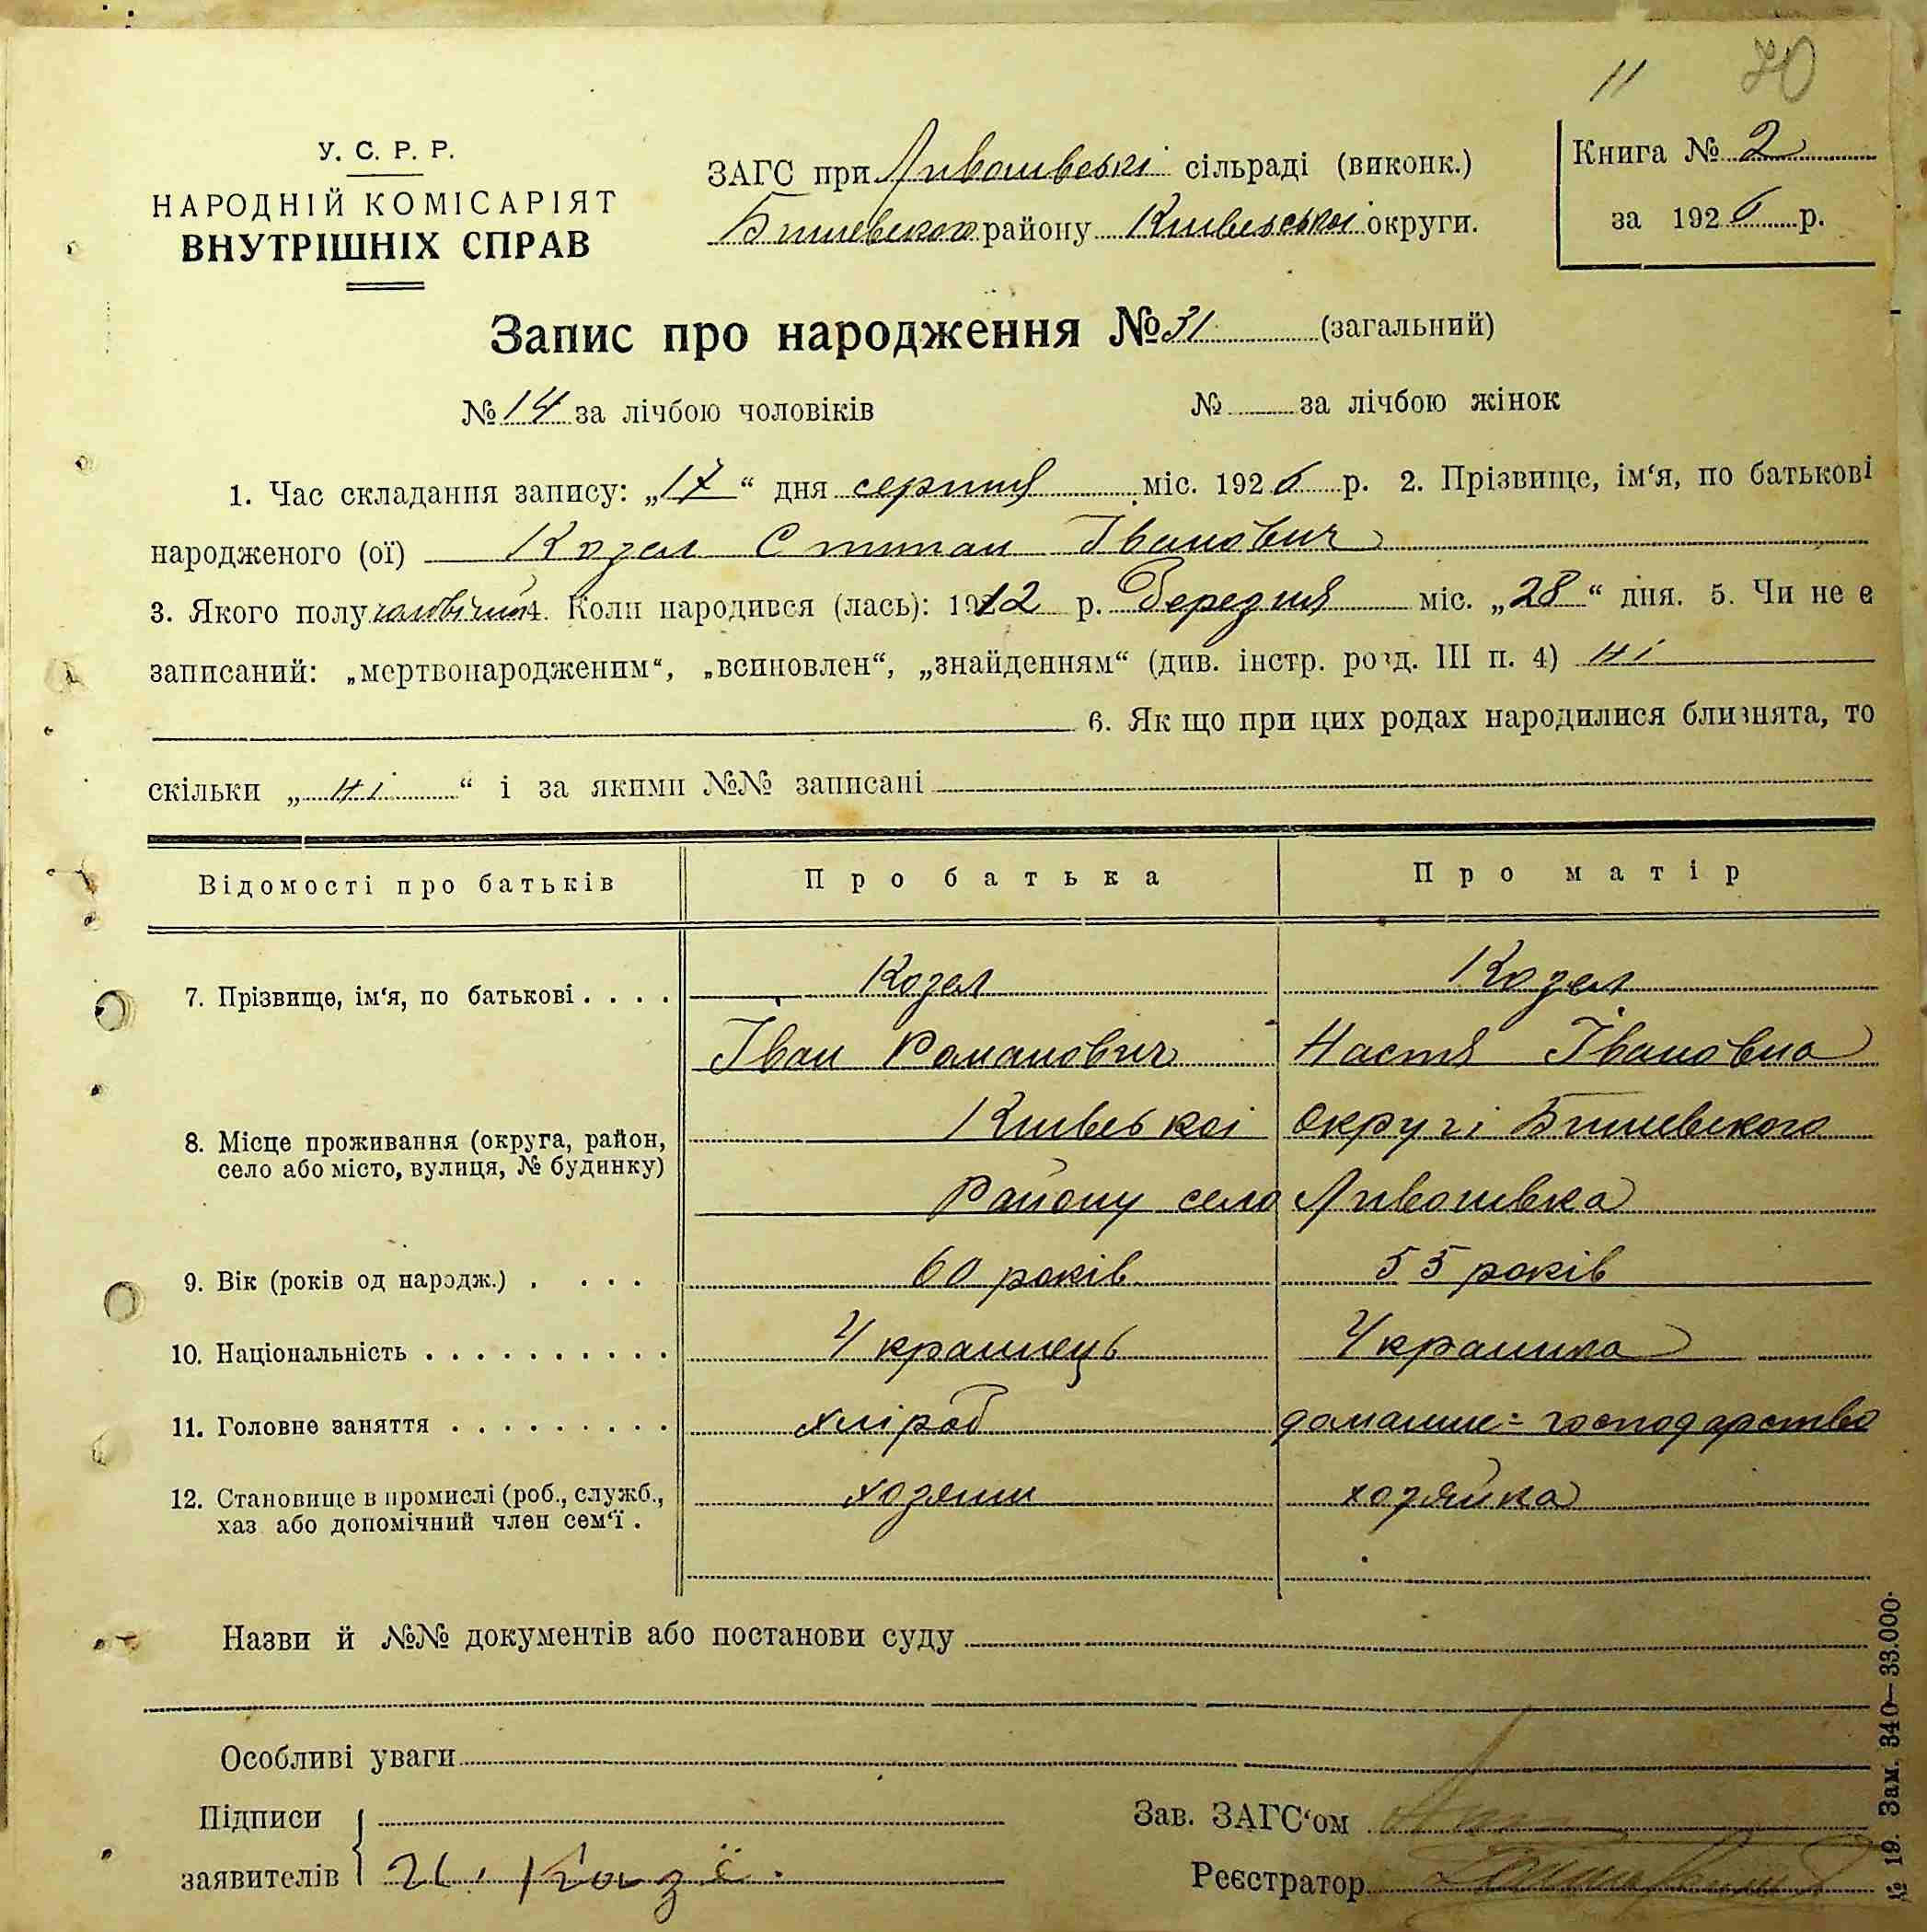 11 70
У. С. Р. Р.
НАРОДНІЙ КОМІСАРІЯТ
ВНУТРІШНІХ СПРАВ
ЗАГС приЛивошвські сільраді (виконк.)
Бишевского району Киівської округи.
Книга № 2
за 1926 р.
Запис про народження № 31 (загальний)
№ 14 за лічбою чоловіків № за лічбою жінок
1. Час складання запису: „17“ дня серпня міс. 1926 р. 2. Прізвище, ім‘я, по батькові
народженого (ої) Козел Степан Іванович
3. Якого полу чоловічий 4. Коли народився (лась): 1912 р. Березня міс. „28“ дня. 5. Чи не є
записаний: „мертвонародженим“, „всиновлен“, „знайденням“ (див. інстр. розд. III п. 4) ні
6. Як що при цих родах народилися близнята, то
скільки „ні“ і за якими №№ записані
Відомості про батьків Про батька Про матір
7. Прізвище, ім‘я, по батькові . . . . Козел Козел
Іван Романович Настя Івановна
8. Місце проживання (округа, район, село або місто, вулиця, № будинку) Киівськоі округі Бишевского
Району село Ливошвка
9. Вік (років од народж.) . . . . 60 років 55 років
10. Національність . . . . . . . . . . Українець Українка
11. Головне заняття . . . . . . . . . хліроб домашнє-господарство
12. Становище в промислі (роб., служб., хаз або допомічний член сем‘ї . хозяин хозяйка
Назви й №№ документів або постанови суду
Особливі уваги
Підписи
заявителів
Зав. ЗАГС‘ом
Реєстратор
№ 19. Зам. 340—33.000.